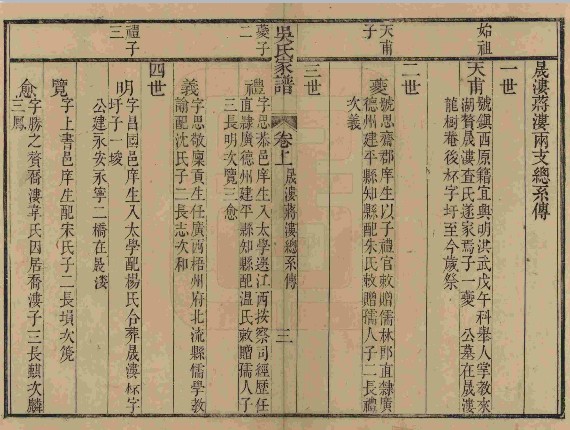 晟漊蔣漊兩支總系傳
始祖
一世
天甫號鎮西原籍宜興明洪武戊午科舉人掌教來
湖贅晟漊查氏遂家焉子一夔　公墓在晟漊
龍樹菴後杯字圩至今歲祭
二世
天甫子
夔號思齋郡庠生以子禮官敕贈儒林郎直隸廣
德州建平縣知縣配朱氏敕贈孺人子二長禮
次義
三世
吳氏家譜
卷上
晟漊蔣漊總系傳
三
夔子二
禮字思恭邑庠生入太學選江西按察司經歷任
直隸廣德州建平縣知縣配溫氏敕贈孺人子
三長明次覽三愈
義字思敬廩貢生任廣西梧州府北流縣儒學教
諭配沈氏子二長志次和
四世
禮子三
明字昌國邑庠生入太學配楊氏合葬晟漊杯字
圩子一
公建永安永寧二橋在晟漊
覽字上書邑庠生配宋氏子二長塤次篪
愈字勝之贅喬漊章氏因居喬漊子三長麒次麟
三鳳